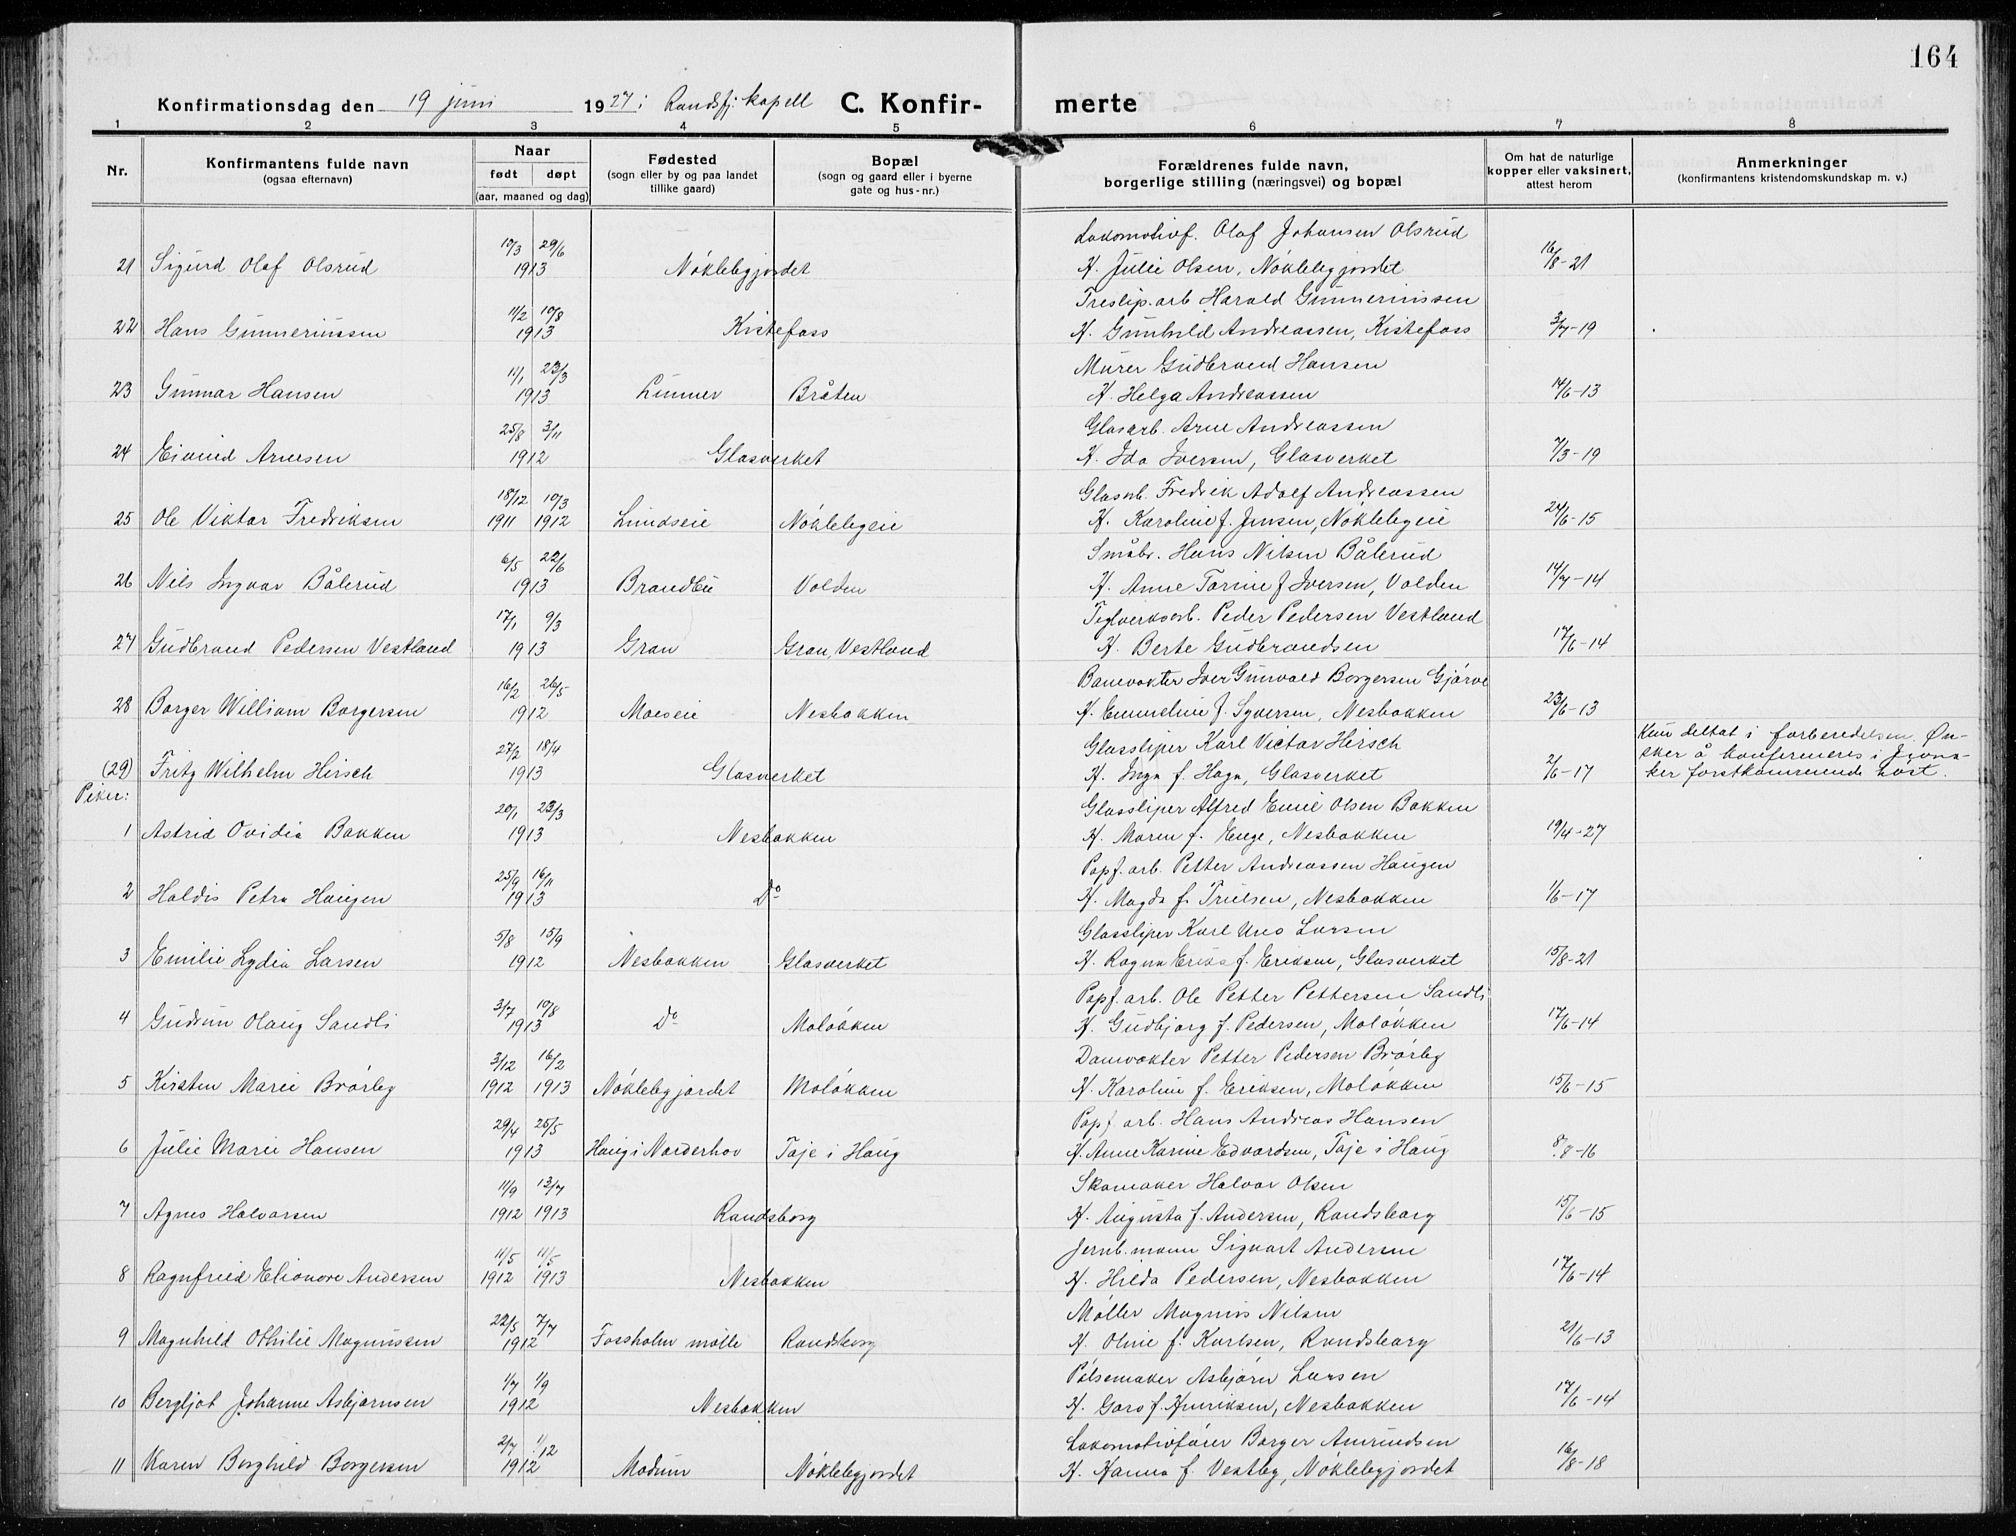 164
Konfirmationsdag den 19 juni 1927 i Randsfj. kapell C. Konfir- merte
1 2 3 4 5 6 7 8
Nr. Konfirmantens fulde navn (ogsaa efternavn) Naar født døpt (aar, maaned og dag) Fødested (sogn eller by og paa landet tillike gaard) Bopæl (sogn og gaard eller i byerne gate og hus-nr.) Forældrenes fulde navn, borgerlige stilling (næringsvei) og bopæl Om hat de naturlige kopper eller vaksinert, attest herom Anmerkninger (konfirmantens kristendomskundskap m. v.)
10/3 29/6 Lokomotivf. Olaf Johansen Olsrud
21 Sigurd Olaf Olsrud 1913 Nøklebygjordet H. Julie Olsen, Nøklebygjordet 16/8-21
11/2 10/8 Treslip.arb Harald Gunneriussen
22 Hans Gunneriussen 1913 Kistefoss H. Gunhild Andreassen, Kistefoss 3/7-19
11/1 23/3 Murer Gudbrand Hansen
23 Gunnar Hansen 1913 Lunner Bråten H. Helga Andreassen 14/6-13
25/8 3/11 Glasarb. Arne Andreassen
24 Eivind Arnesen 1912 Glasverket H. Ida Iversen, Glasverket 7/3-19
18/12 10/3 Glasarb. Fredrik Adolf Andreassen
25 Ole Viktor Fredriksen 1911 1912 Lundseie Nøklebyeie H. Karoline f. Jensen, Nøklebyeie 24/6-15
6/5 22/6 Småbr. Hans Nilsen Bålerud
26 Nils Ingvar Bålerud 1913 Brandbu Volden H. Anne Torine f Iversen, Volden 14/7-14
17/1 9/3 Teglverksarb. Peder Pedersen Vestland
27 Gudbrand Pedersen Vestland 1913 Gran Gran, Vestland H. Berte Gudbrandsen 17/6-14
16/2 26/5 Banevokter Iver Gunvald Borgersen Gjørve
28 Borger William Borgersen 1912 Moeseie Nesbakken H. Emmeline f. Syversen, Nesbakken 23/6-13
27/2 18/4 Glassliper Karl Victor Hirsch Kun deltat i forberedelsen. Øn-
(29) Fritz Wilhelm Hirsch 1913 Glasverket H. Inga f. Haga, Glasverket 2/6-17 sker å konfirmeres i Jevna-
ker førstkommende høst.
Piker:
20/1 23/3 Glassliper Alfred Emil Olsen Bakken
1 Astrid Ovidia Bakken 1913 Nesbakken H. Maren f. Enge, Nesbakken 19/4-27
25/9 16/11 Papf. arb. Petter Andreassen Haugen
2 Haldis Petra Haugen 1913 Do H. Magda f. Trulsen, Nesbakken 1/6-17
5/8 15/9 Glassliper Karl Uno Larsen
3 Emilie Lydia Larsen 1912 Nesbakken Glasverket H. Ragna Erika f. Eriksen, Glasverket 15/8-21
3/7 10/8 Papf. arb. Ole Petter Pettersen Sandli
4 Gudrun Olaug Sandli 1913 Do Moløkken H. Gudbjørg f. Pedersen, Moløkken 17/6-14
3/12 16/2 Banevokter Petter Pedersen Brørby
5 Kirsten Marie Brørby 1912 1913 Nøklebygjordet Moløkken H. Karoline f. Eriksen, Moløkken 15/6-15
29/4 25/5 Papf arb. Hans Andreas Hansen
6 Julie Marie Hansen 1913 Haug i Norderhov Taje i Haug H. Anne Karine Edvardsen, Taje i Haug 8-16
11/9 13/7 Skomaker Halvor Olsen
7 Agnes Halvorsen 1912 1913 Randsborg H. Augusta f. Andersen, Randsborg 15/6-15
11/5 11/5 Jernb.mann Sigvart Andersen
8 Ragnfried Elionore Andersen 1912 1913 Nesbakken H. Hilda Pedersen, Nesbakken 17/6-14
22/5 7/7 Møller Magnus Nilsen
9 Magnhild Othilie Magnussen 1912 Fossholm mølle Randsborg H. Oline f. Karlsen, Randsborg 21/6-13
1/7 1/9 Pølsemaker Asbjørn Larsen
10 Bergljot Johanne Asbjørnsen 1912 Nesbakken H. Goro f. Henriksen, Nesbakken 17/6-14
2/7 1/12 Lokomotivfører Borger Amundsen
11 Karen Borghild Borgersen 1912 Modum Nøklebygjordet H. Hanna f. Vestby, Nøklebygjordet 16/8-18